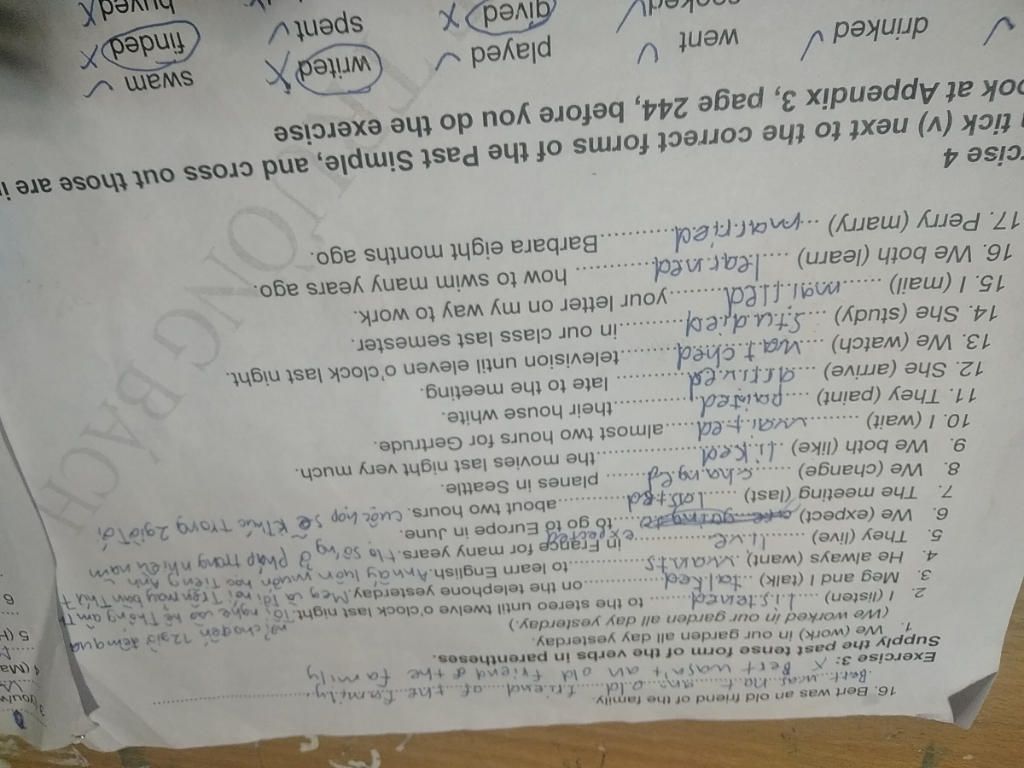 16. Bert was an old friend of the family.
Bert was not an old friend of the family
X Bert wasn't an old friend of the family
Exercise 3:
Supply the past tense form of the verbs in parentheses.
1. We (work) in our garden all day yesterday.
(We worked in our garden all day yesterday.)
2. I (listen) .....listened......... to the stereo until twelve o'clock last night.
3. Meg and I (talk) ..talked............on the telephone yesterday.
4. He always (want) wants............to learn English.
5. They (live) ......live.................in France for many years.
6. We (expect) are going to expected ....to go to Europe in June.
7. The meeting (last) ......lasted..........about two hours. Cuộc họp sẽ kết thúc trong 2 giờ tới
8. We (change) ......changed...... planes in Seattle.
9. We both (like) .liked...............the movies last night very much.
10. I (wait) .........waited.....almost two hours for Gertrude.
11. They (paint) .....painted...........their house white.
12. She (arrive) ....arrived.......... late to the meeting.
13. We (watch) ....watched..........television until eleven o'clock last night.
14. She (study) ....studied...........in our class last semester.
15. I (mail) ......mailled..........your letter on my way to work.
16. We both (learn) ....learned............ how to swim many years ago.
17. Perry (marry) ...married............Barbara eight months ago.
cise 4
tick (v) next to the correct forms of the Past Simple, and cross out those are
ook at Appendix 3, page 244, before you do the exercise
drinked went played writed X swam
gived X spent finded X
TRƯỜNG BÁCH